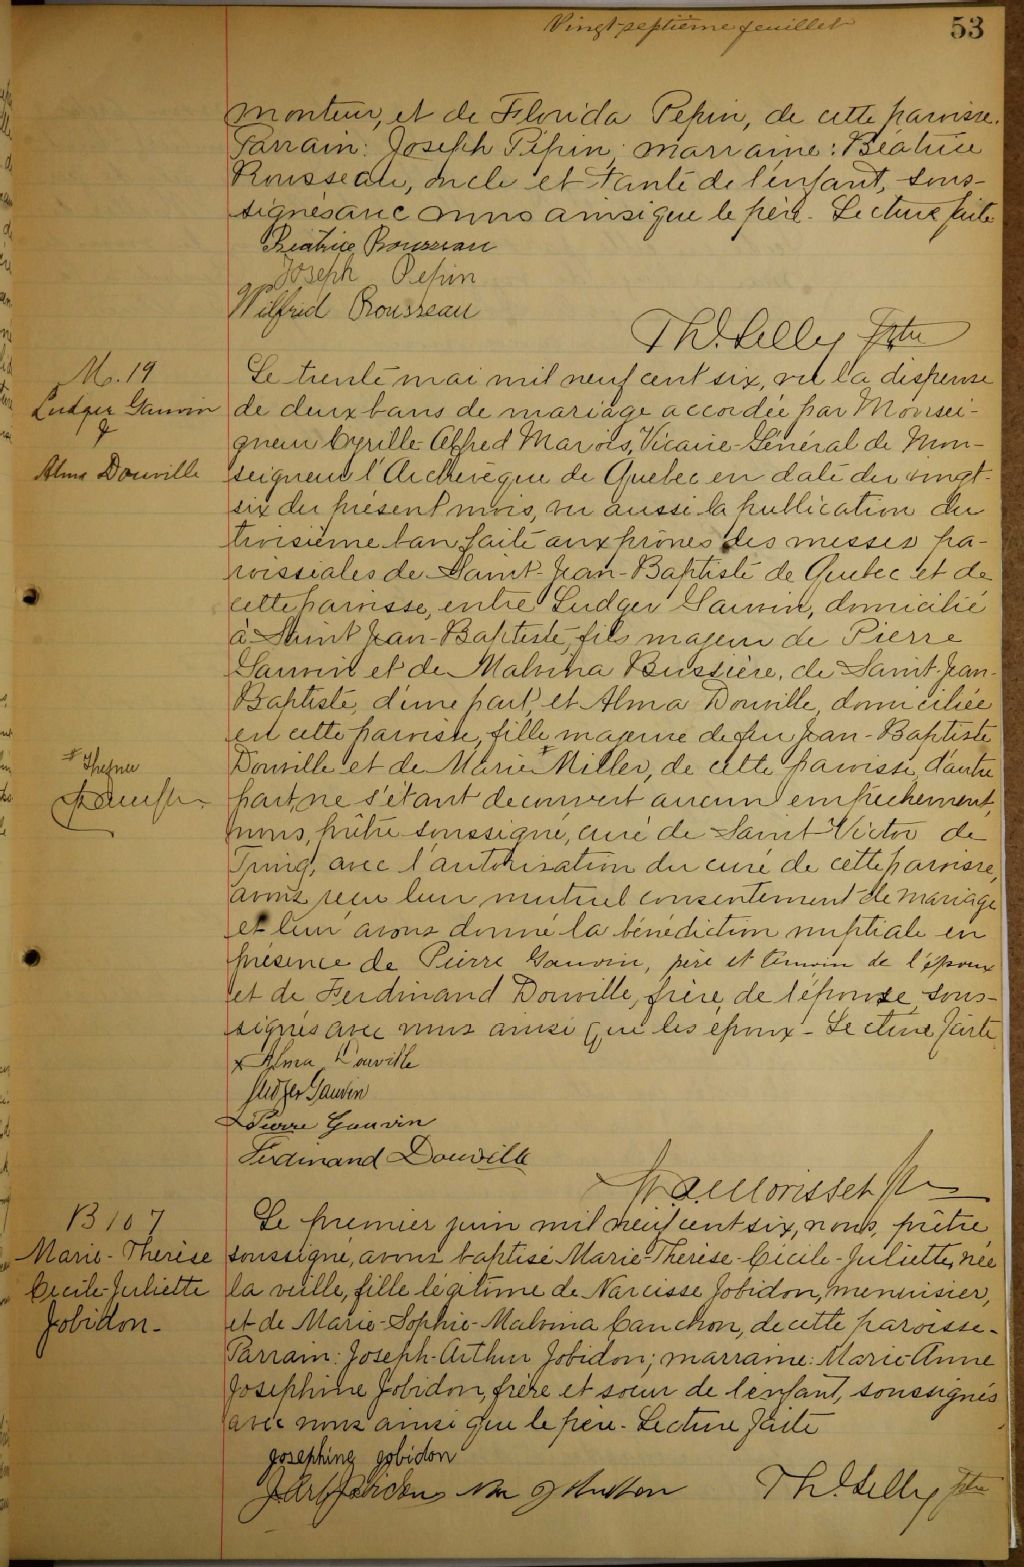 Vingt-septième feuillet
53
monteur, et de Florida Pepin, de cette paroisse.
Parrain: Joseph Pépin; marraine: Béatrice
Rousseau, oncle et tante de l'enfant, sous-
signés avec nous ainsi que le père. Lecture faite
Béatrice Rousseau
Joseph Pepin
Wilfrid Rousseau
Th. Lelly Ptre
M. 19
Ludger Gauvin
&
Alma Douville
Le trente mai mil neuf cent six, vu la dispense
de deux bans de mariage accordée par Monsei-
gneur Cyrille Alfred Marois, Vicaire-Général de Mon-
seigneur l'Archevêque de Quebec en date du vingt-
six du présent mois, vu aussi la publication du
troisième ban faite aux prônes des messes pa-
roissiales de Saint-Jean-Baptiste de Quebec et de
cette paroisse, entre Ludger Gauvin, domicilié
à Saint Jean-Baptiste, fils majeur de Pierre
Gauvin et de Malvina Bussière, de Saint-Jean-
Baptiste, d'une part, et Alma Douville, domiciliée
en cette paroisse, fille majeure de feu Jean-Baptiste
Douville et de Marie # Miller, de cette paroisse, d'autre
part, ne s'étant découvert aucun empêchement,
nous, prêtre soussigné, curé de Saint-Victor de
Tring, avec l'autorisation du curé de cette paroisse,
avons reçu leur mutuel consentement de mariage
et leur avons donné la bénédiction nuptiale en
présence de Pierre Gauvin, père et témoin de l'époux
et de Ferdinand Douville, frère de l'épouse, sous-
signés avec nous ainsi que les époux - Lecture faite
x Alma Douville
Ludger Gauvin
Pierre Gauvin
Ferdinand Douville
Morisset Ptre
B 107
Marie-Thérèse
Cécile-Juliette
Jobidon-
Le premier juin mil neuf cent six, nous, prêtre
soussigné, avons baptisé Marie-Thérèse-Cécile-Juliette, née
la veille, fille légitime de Narcisse Jobidon, menuisier,
et de Marie-Sophie-Malvina Cauchon, de cette paroisse-
Parrain: Joseph-Arthur Jobidon; marraine: Marie-Anne
Josephine Jobidon, frère et soeur de l'enfant, soussignés
avec nous ainsi que le père - Lecture faite
Josephine Jobidon
Th. Lelly Ptre